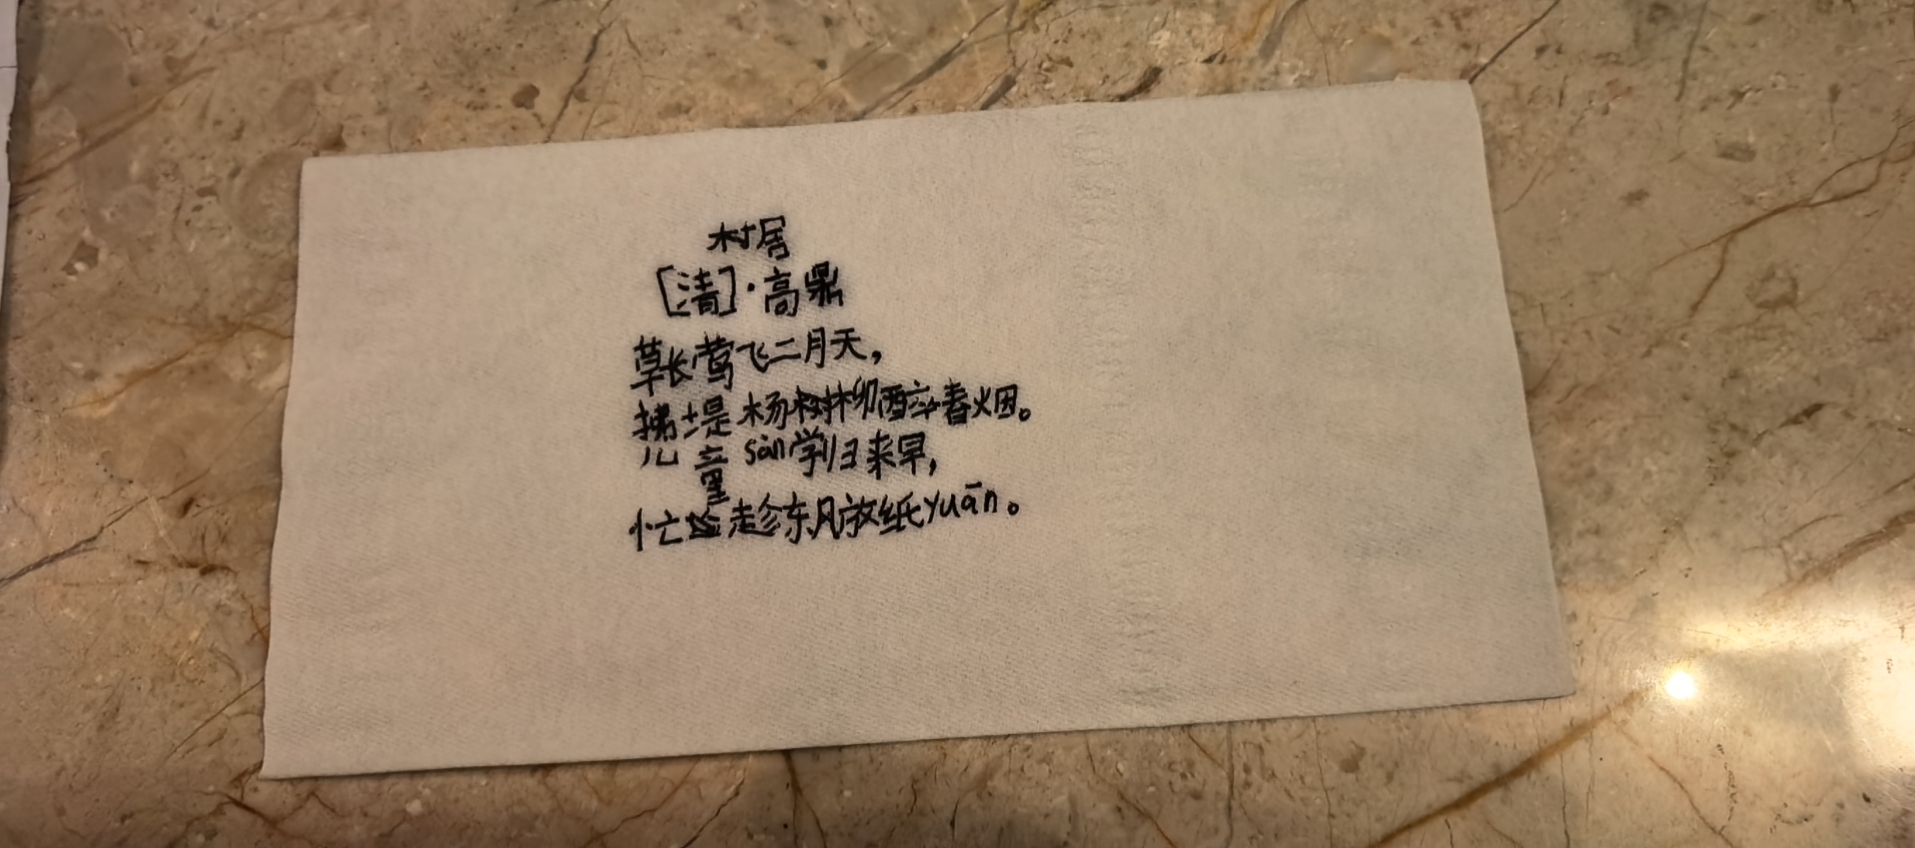 村居
[清]·高鼎
草长莺飞二月天，
拂堤杨柳醉春烟。
儿童sàn学归来早，
忙趁东风放纸yuān。